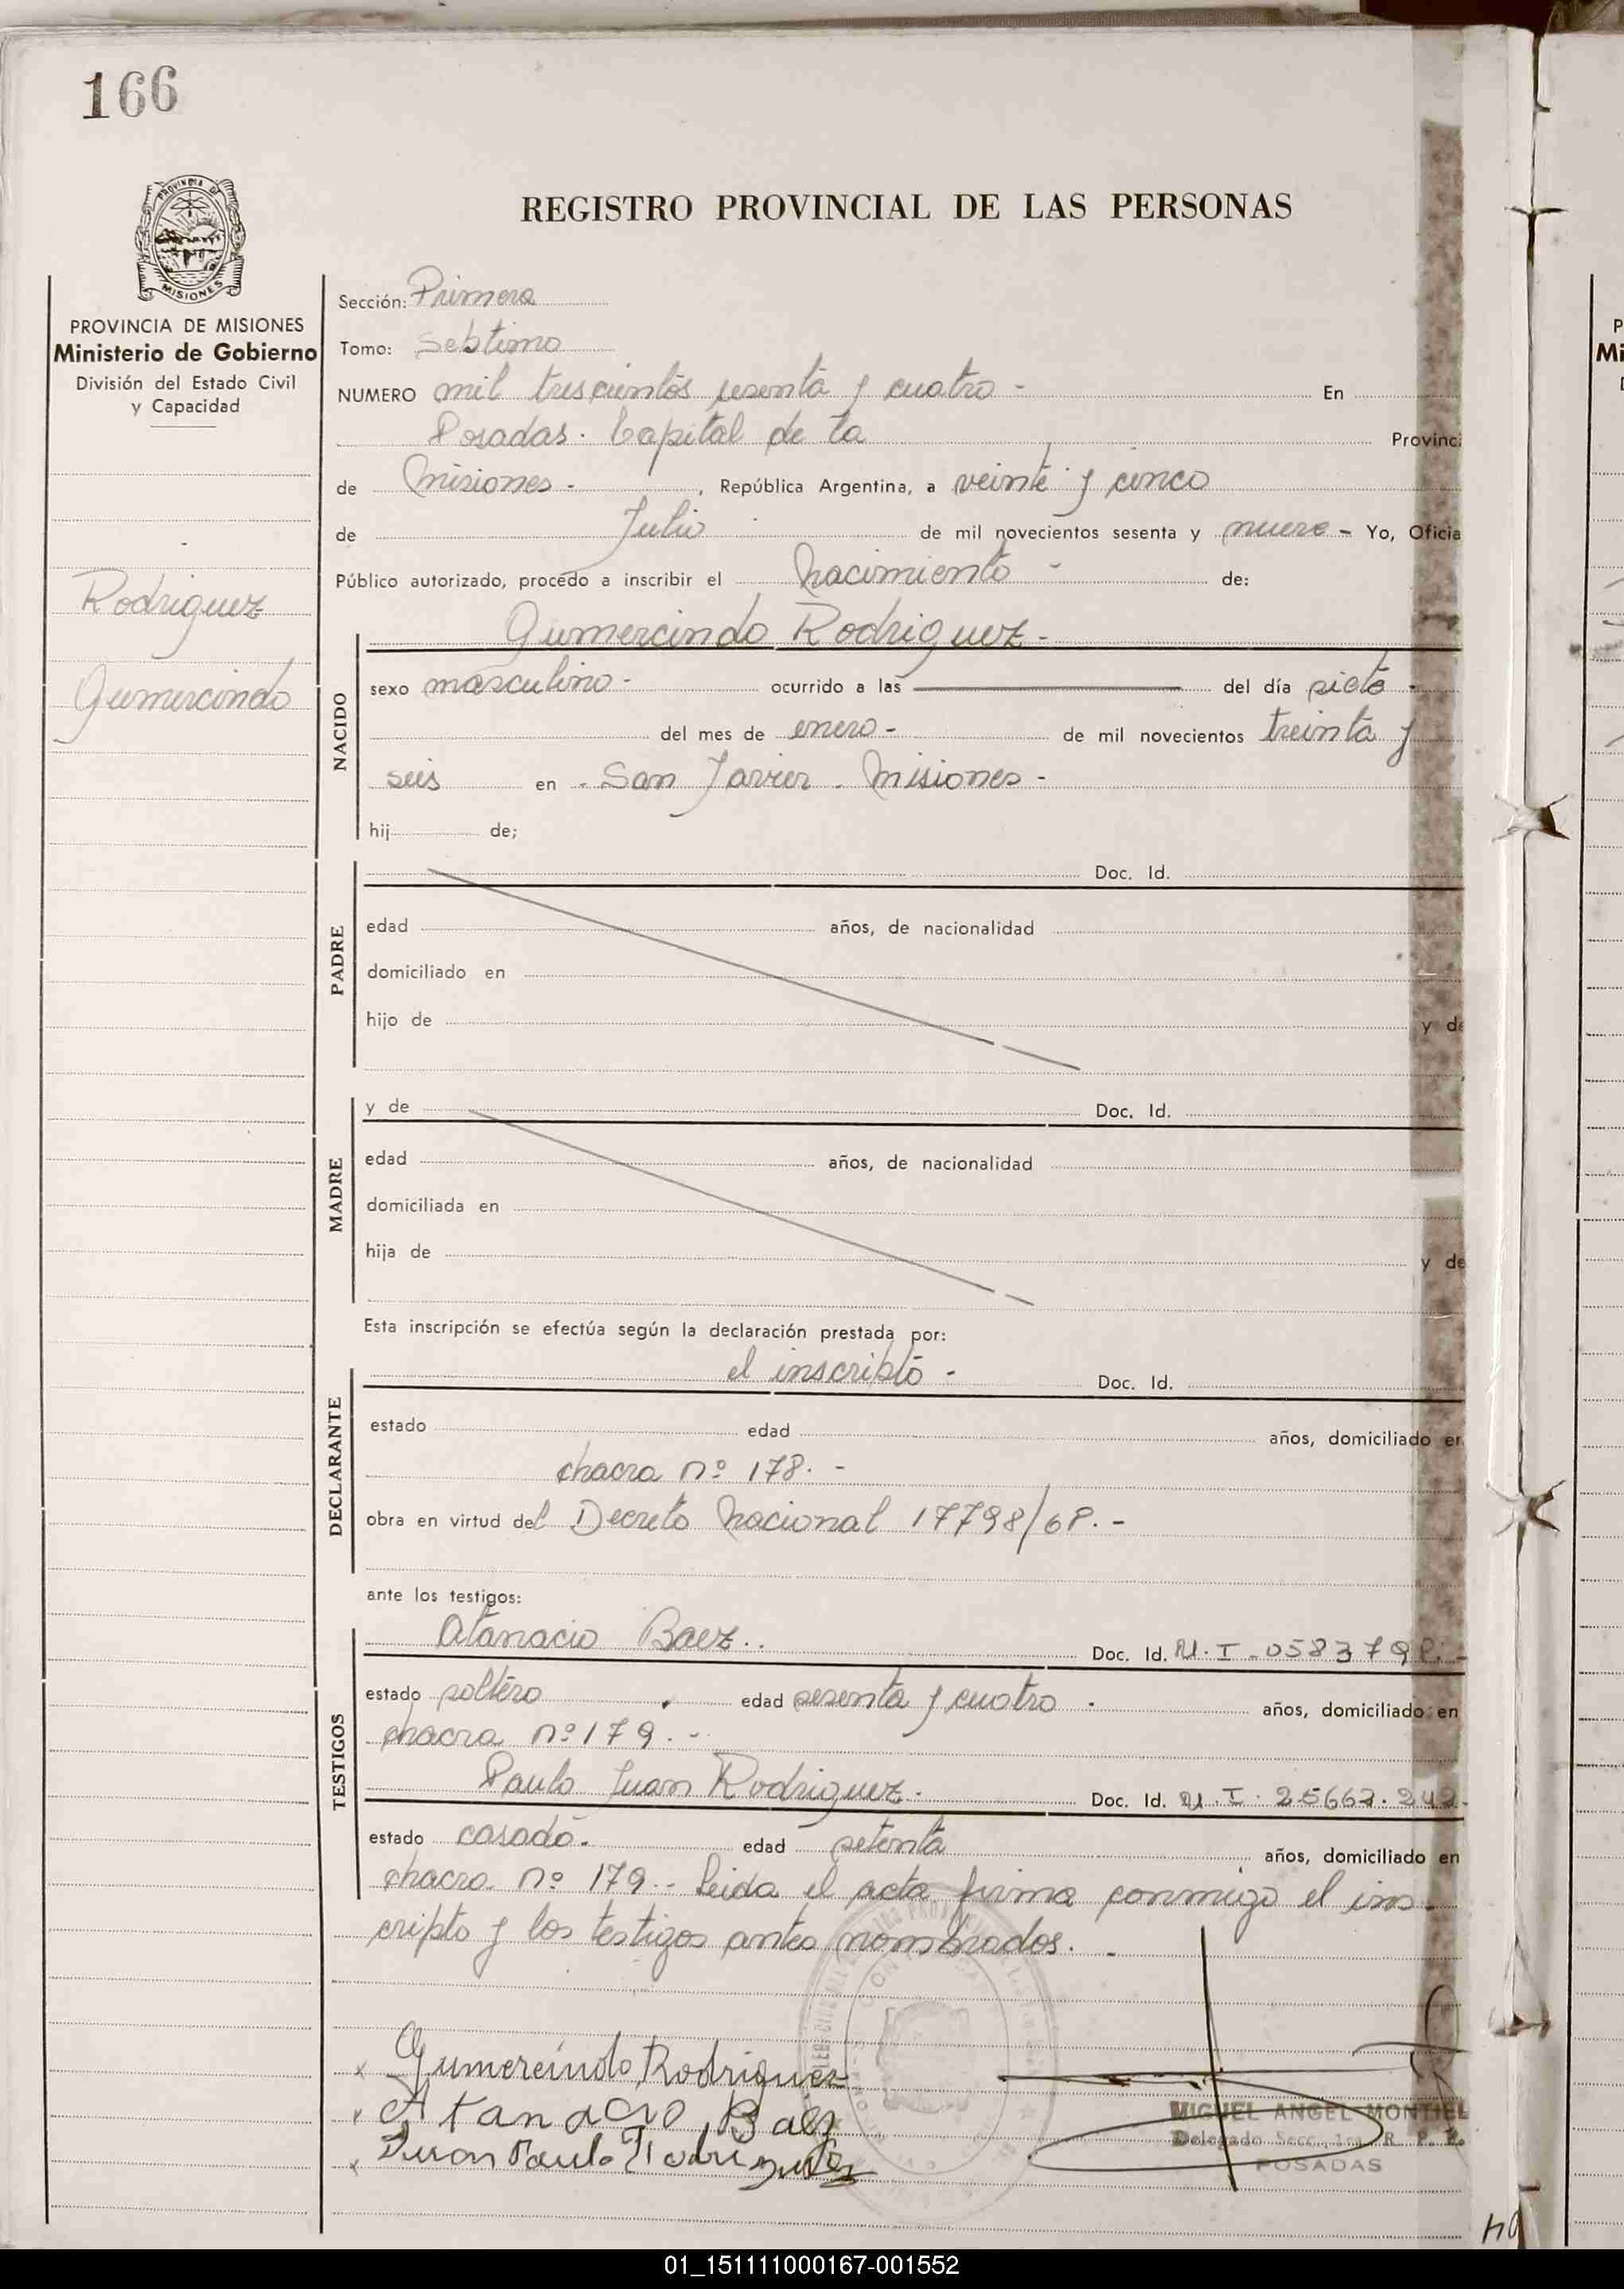 166
PROVINCIA DE MISIONES
REGISTRO PROVINCIAL DE LAS PERSONAS
PROVINCIA DE MISIONES
Ministerio de Gobierno
División del Estado Civil
y Capacidad
Rodriguez
Gumercindo
Sección: Primera
Tomo: Sebtimo
NUMERO mil trescientos sesenta y cuatro - En
Posadas. Capital de la Provinci
de Misiones - , República Argentina, a veinte y cinco
de Julio de mil novecientos sesenta y nueve - Yo, Oficia
Público autorizado, procedo a inscribir el nacimiento - de:
Gumercindo Rodriguez -
NACIDO
sexo masculino - ocurrido a las del día siete -
del mes de enero - de mil novecientos treinta y
seis en San Javier. Misiones -
hij de;
PADRE
Doc. Id.
edad años, de nacionalidad
domiciliado en
hijo de y de
MADRE
y de Doc. Id.
edad años, de nacionalidad
domiciliada en
hija de y de
Esta inscripción se efectúa según la declaración prestada por:
DECLARANTE
el inscribto - Doc. Id.
estado edad años, domiciliado en
chacra nº 178. -
obra en virtud del Decreto Nacional 17798/68. -
ante los testigos:
TESTIGOS
Atanacio Baez.. Doc. Id. M.I.
estado soltero edad sesenta y cuatro años, domiciliado en
chacra nº 179. -
Paulo Juan Rodriguez. Doc. Id. M.I.
estado casado. edad setenta años, domiciliado en
chacra nº 179.- Leida el acta firma conmigo el ins
cripto y los testigos antes nombrados. -
x Gumercindo Rodriguez
x Atanacio Baez
x Juan Paulo Rodriguez
MIGUEL ANGEL MONTIEL
Delegado Secc. 1ra. R. P. P.
POSADAS
01_151111000167-001552